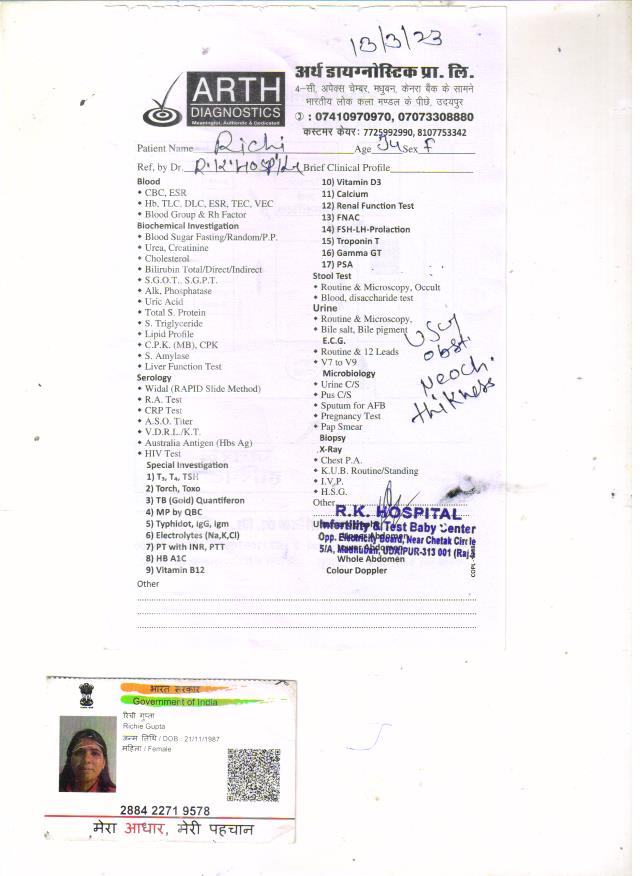 13/3/23
ARTH
DIAGNOSTICS
Meaningful, Authentic & Dedicated
अर्थ डायग्नोस्टिक प्रा. लि.
4-सी, अपेक्स चेम्बर, मधुबन, केनरा बैंक के सामने
भारतीय लोक कला मण्डल के पीछे, उदयपुर
: 07410970970, 07073308880
कस्टमर केयर: 7725992990, 8107753342
Patient Name Richi Age 34 Sex F
Ref, by Dr. R.K. Hospital Brief Clinical Profile
Blood
CBC, ESR
Hb, TLC, DLC, ESR, TEC, VEC
Blood Group & Rh Factor
Biochemical Investigation
Blood Sugar Fasting/Random/P.P.
Urea, Creatinine
Cholesterol
Bilirubin Total/Direct/Indirect
S.G.O.T., S.G.P.T.
Alk, Phosphatase
Uric Acid
Total S. Protein
S. Triglyceride
Lipid Profile
C.P.K. (MB), CPK
S. Amylase
Liver Function Test
Serology
Widal (RAPID Slide Method)
R.A. Test
CRP Test
A.S.O. Titer
V.D.R.L./K.T.
Australia Antigen (Hbs Ag)
HIV Test
Special Investigation
1) T₃, T₄, TSH
2) Torch, Toxo
3) TB (Gold) Quantiferon
4) MP by QBC
5) Typhidot, igG, igm
6) Electrolytes (Na,K,Cl)
7) PT with INR, PTT
8) HB A1C
9) Vitamin B12
Other
10) Vitamin D3
11) Calcium
12) Renal Function Test
13) FNAC
14) FSH-LH-Prolaction
15) Troponin T
16) Gamma GT
17) PSA
Stool Test
Routine & Microscopy, Occult
Blood, disaccharide test
Urine
Routine & Microscopy,
Bile salt, Bile pigment
E.C.G.
Routine & 12 Leads
V7 to V9
Microbiology
Urine C/S
Pus C/S
Sputum for AFB
Pregnancy Test
Pap Smear
Biopsy
X-Ray
Chest P.A.
K.U.B. Routine/Standing
I.V.P.
H.S.G.
Other
USG
obst.
thikness
R.K. HOSPITAL
Infertility & Test Baby Center
Opp. Electricity Board, Near Chetak Circle
5/A, Madhuban, UDAIPUR-313 001 (Raj.)
Whole Abdomen
Colour Doppler
भारत सरकार
Government of India
रिची गुप्ता
Richie Gupta
जन्म तिथि / DOB : 21/11/1987
महिला / Female
2884 2271 9578
मेरा आधार, मेरी पहचान